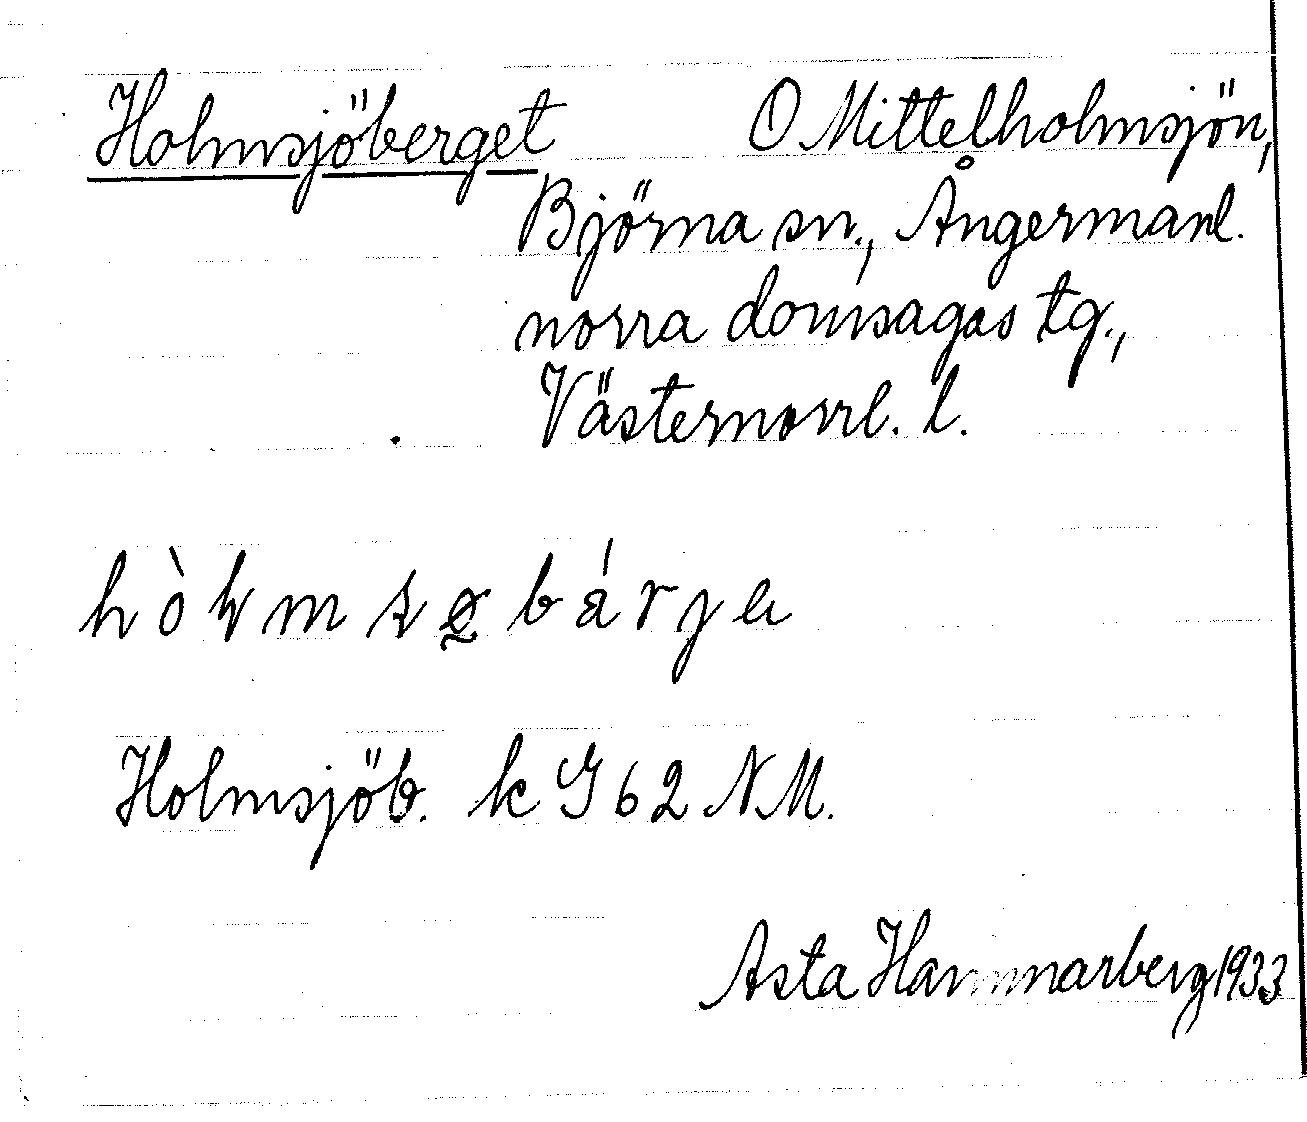 Holmsjöberget O Mittelholmsjön,
Björna sn., Ångermanl.
norra domsagas tg.,
Västernorrl. l.
Holmsjöb. k G 62 NM.
Asta Hammarberg 1933